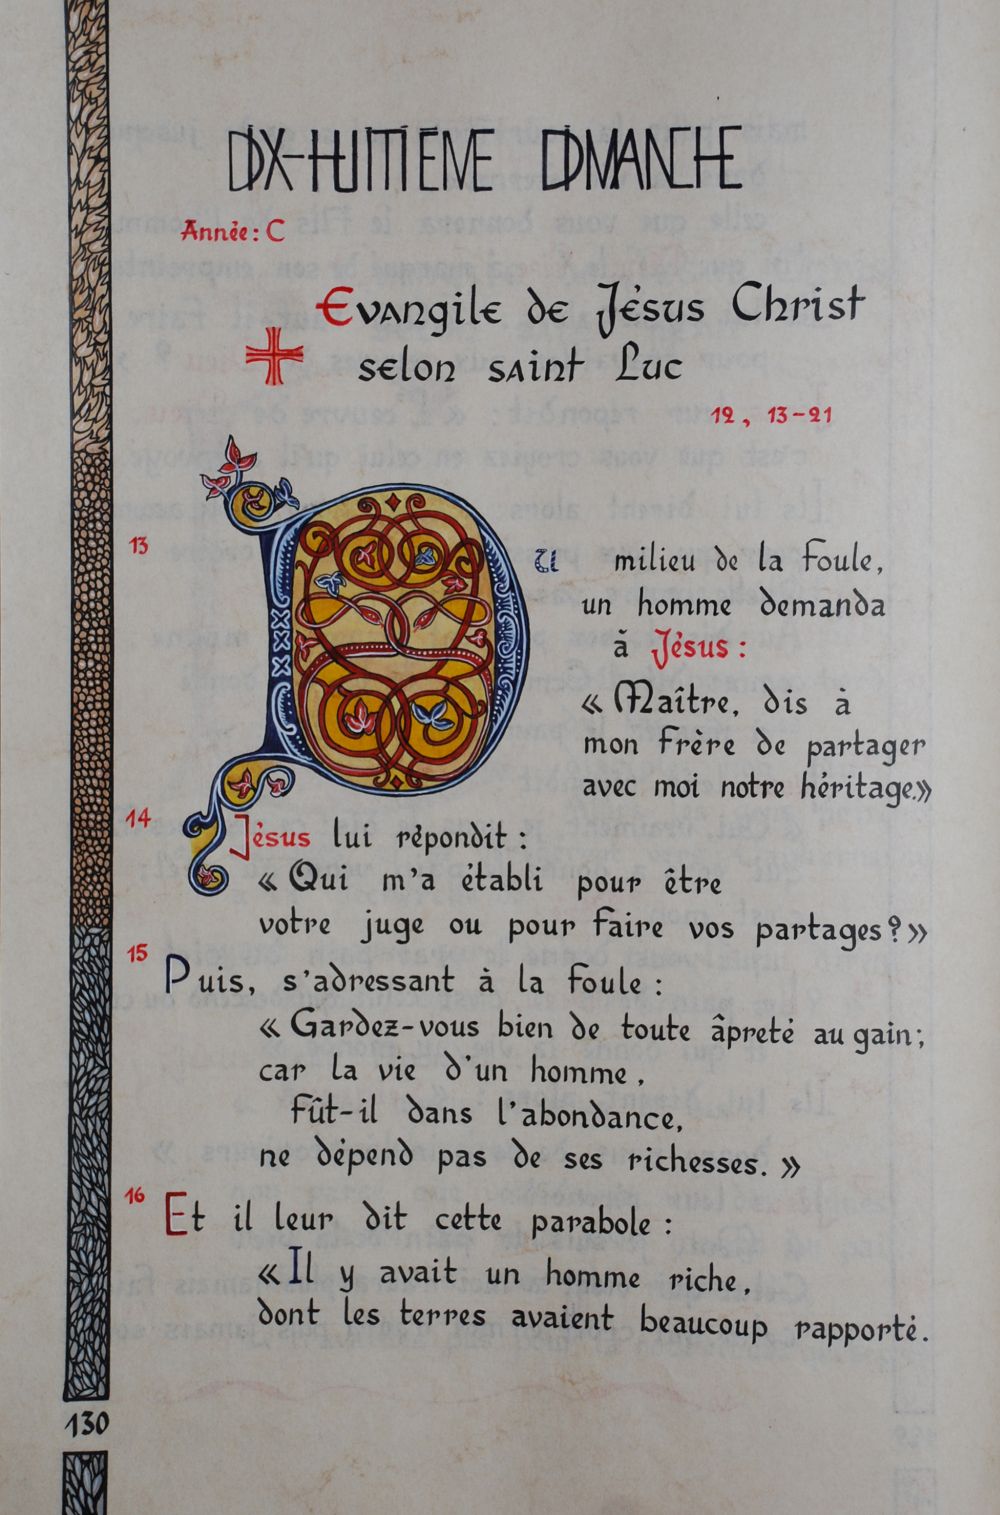 DIX-HUITIÈME DIMANCHE
Année: C
Evangile de Jésus Christ
selon saint Luc
12, 13-21
13 Du milieu de la foule,
un homme demanda
à Jésus :
« Maître, dis à
mon frère de partager
avec moi notre héritage.»
14 Jésus lui répondit :
« Qui m'a établi pour être
votre juge ou pour faire vos partages ? »
15 Puis, s'adressant à la foule :
« Gardez-vous bien de toute âpreté au gain ;
car la vie d'un homme,
fût-il dans l'abondance,
ne dépend pas de ses richesses. »
16 Et il leur dit cette parabole :
« Il y avait un homme riche,
dont les terres avaient beaucoup rapporté.
130